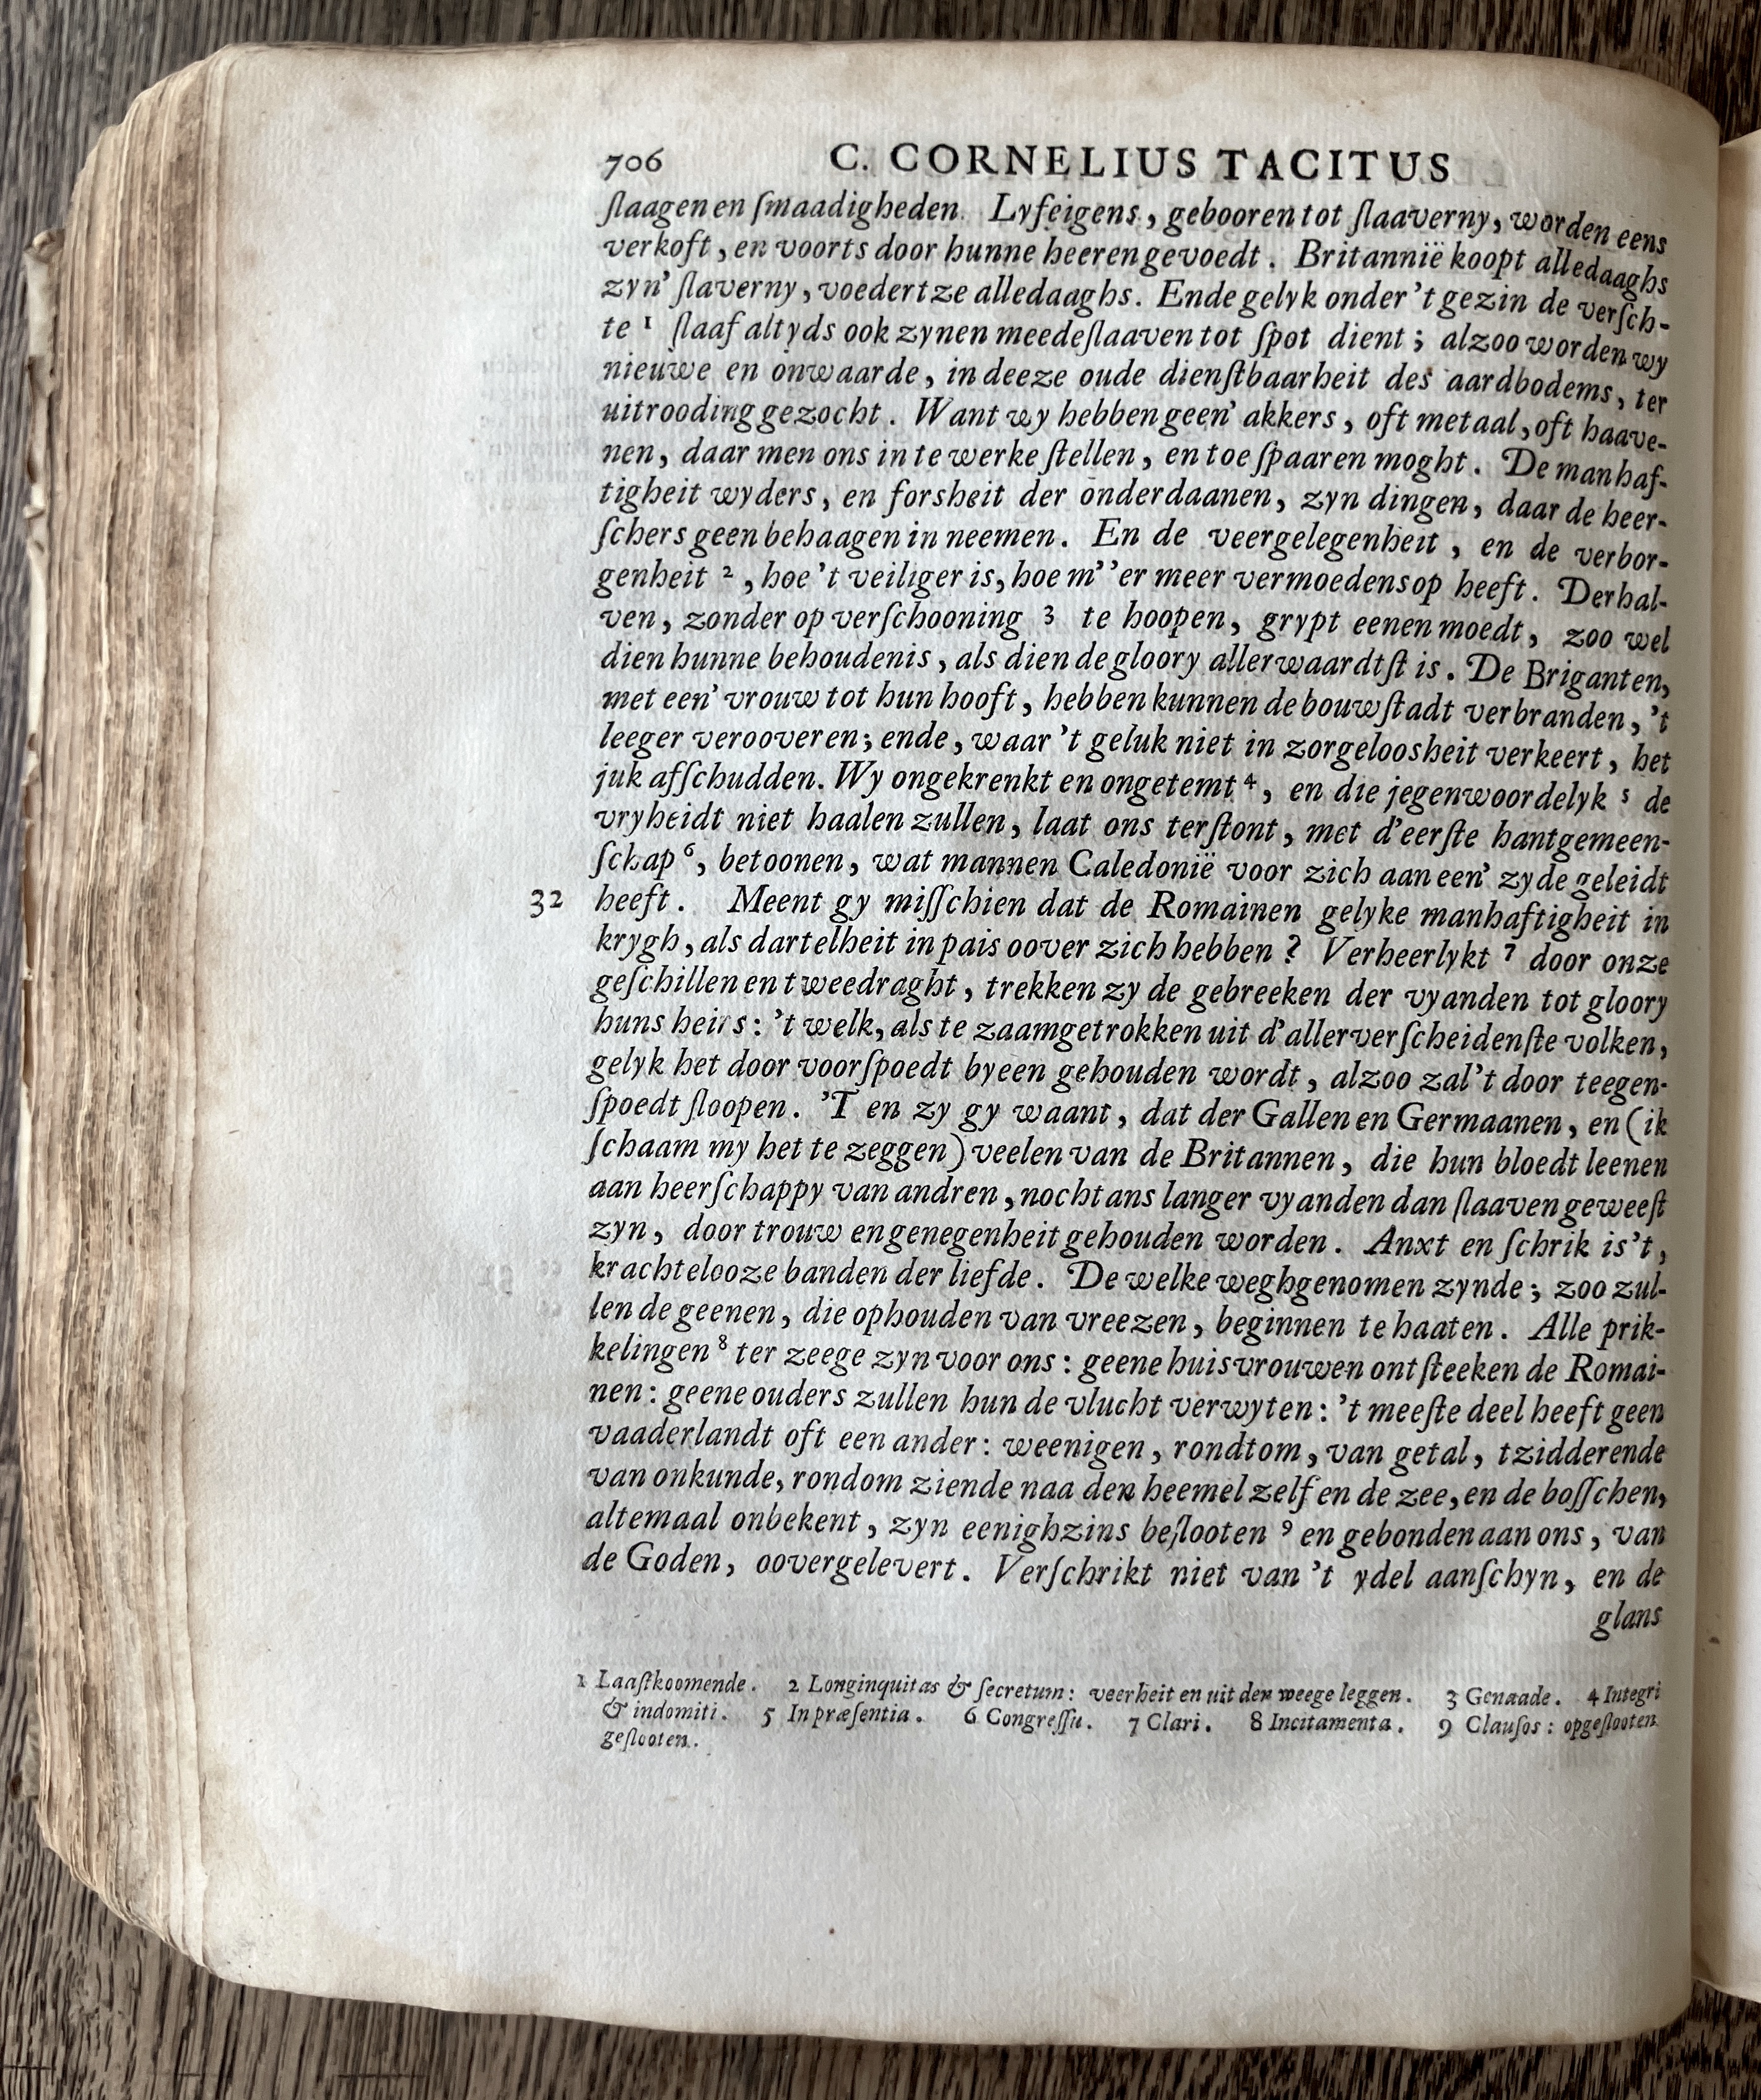 706 C. CORNELIUS TACITUS
ſlaagen en ſmaadigheden. Lyfeigens, gebooren tot ſlaaverny, worden eens
verkoft, en voorts door hunne heeren gevoedt. Britannië koopt alledaaghs
zyn' ſlaverny, voedert ze alledaaghs. Ende gelyk onder 't gezin de verſch-
te 1 ſlaaf altyds ook zynen meedeſlaaven tot ſpot dient; alzoo worden wy
nieuwe en onwaarde, in deeze oude dienſtbaarheit des aardbodems, ter
uitrooding gezocht. Want wy hebben geen' akkers, oft metaal, oft haave-
nen, daar men ons in te werke ſtellen, en toe ſpaaren moght. De manhaf-
tigheit wyders, en forsheit der onderdaanen, zyn dingen, daar de heer-
ſchers geen behaagen in neemen. En de veergelegenheit, en de verbor-
genheit 2, hoe 't veiliger is, hoe m' 'er meer vermoedens op heeft. Derhal-
ven, zonder op verſchooning 3 te hoopen, grypt eenen moedt, zoo wel
dien hunne behoudenis, als dien de gloory allerwaardtſt is. De Briganten,
met een' vrouw tot hun hooft, hebben kunnen de bouwſtadt verbranden, 't
leeger verooveren; ende, waar 't geluk niet in zorgeloosheit verkeert, het
juk afſchudden. Wy ongekrenkt en ongetemt 4, en die jegenwoordelyk 5 de
vryheidt niet haalen zullen, laat ons terſtont, met d'eerſte hantgemeen-
ſchap 6, betoonen, wat mannen Caledonië voor zich aan een' zyde geleidt
32 heeft. Meent gy miſſchien dat de Romainen gelyke manhaftigheit in
krygh, als dartelheit in pais oover zich hebben? Verheerlykt 7 door onze
geſchillen en tweedraght, trekken zy de gebreeken der vyanden tot gloory
huns heirs: 't welk, als te zaamgetrokken uit d'allerverſcheidenſte volken,
gelyk het door voorſpoedt byeen gehouden wordt, alzoo zal 't door teegen-
ſpoedt ſloopen. 'T en zy gy waant, dat der Gallen en Germaanen, en (ik
ſchaam my het te zeggen) veelen van de Britannen, die hun bloedt leenen
aan heerſchappy van andren, nochtans langer vyanden dan ſlaaven geweeſt
zyn, door trouw en genegenheit gehouden worden. Anxt en ſchrik is't,
krachtelooze banden der liefde. De welke weghgenomen zynde; zoo zul-
len de geenen, die ophouden van vreezen, beginnen te haaten. Alle prik-
kelingen 8 ter zeege zyn voor ons: geene huisvrouwen ontſteeken de Romai-
nen: geene ouders zullen hun de vlucht verwyten: 't meeſte deel heeft geen
vaaderlandt oft een ander: weenigen, rondtom, van getal, tzidderende
van onkunde, rondom ziende naa den heemel zelf en de zee, en de boſſchen,
altemaal onbekent, zyn eenighzins beſlooten 9 en gebonden aan ons, van
de Goden, oovergelevert. Verſchrikt niet van 't ydel aanſchyn, en de
glans
1 Laaſtkoomende. 2 Longinquitas & ſecretum: veerheit en uit den weege leggen. 3 Genaade. 4 Integri
& indomiti. 5 In præſentia. 6 Congreſſu. 7 Clari. 8 Incitamenta. 9 Clauſos: opgeſlooten
geſlooten.